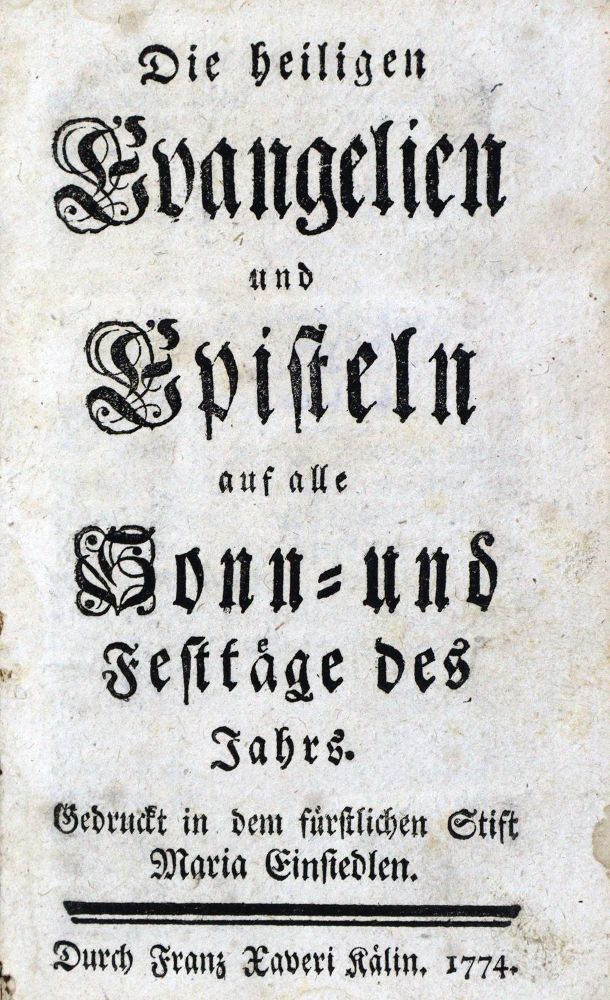 Die heiligen
Evangelien
und
Episteln
auf alle
Sonn-und
Festtäge des
Jahrs.
Gedruckt in dem fürstlichen Stift
Maria Einsiedlen.
Durch Franz Xaveri Kälin. 1774.